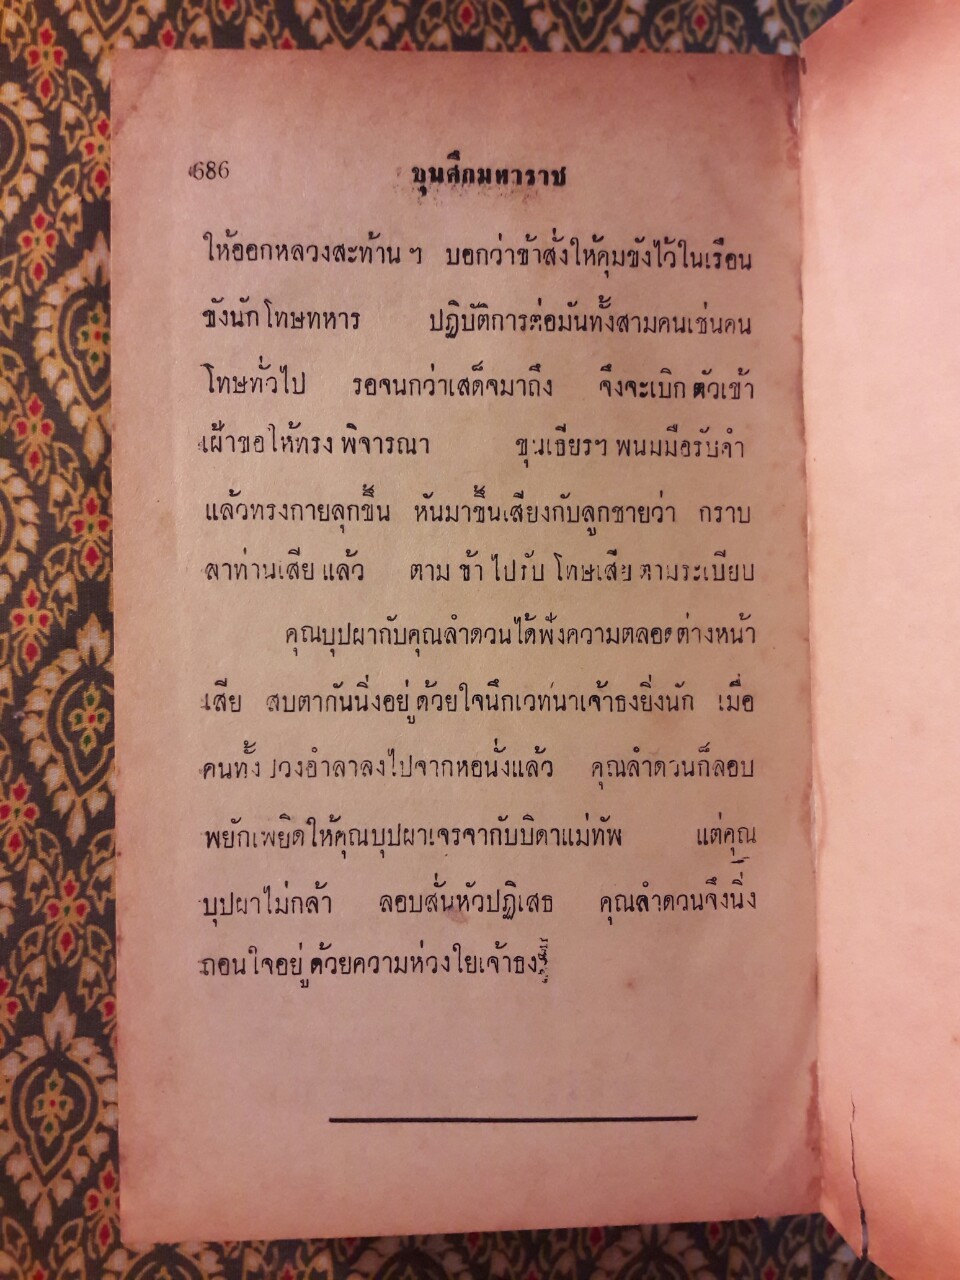 686
ขุนศึกมหาราช
ให้ออกหลวงสะท้าน ฯ บอกว่าข้าสั่งให้คุมขังไว้ในเรือน
ขังนักโทษทหาร ปฏิบัติการต่อมันทั้งสามคนเช่นคน
โทษทั่วไป รอจนกว่าเสด็จมาถึง จึงจะเบิกตัวเข้า
เฝ้าขอให้ทรงพิจารณา ขุนเธียรฯ พนมมือรับคำ
แล้วทรงกายลุกขึ้น หันมาขึ้นเสียงกับลูกชายว่า กราบ
ลาท่านเสียแล้ว ตามข้าไปรับโทษเสียตามระเบียบ
คุณบุปผากับคุณลำดวนได้ฟังความตลอดต่างหน้า
เสีย สบตากันนิ่งอยู่ด้วยใจนึกเวทนาเจ้าธงยิ่งนัก เมื่อ
คนทั้งปวงอำลาลงไปจากหอนั่งแล้ว คุณลำดวนก็ลอบ
พยักเพยิดให้คุณบุปผาเจรจากับบิดาแม่ทัพ แต่คุณ
บุปผาไม่กล้า ลอบสั่นหัวปฏิเสธ คุณลำดวนจึงนิ่ง
ถอนใจอยู่ด้วยความห่วงใยเจ้าธง